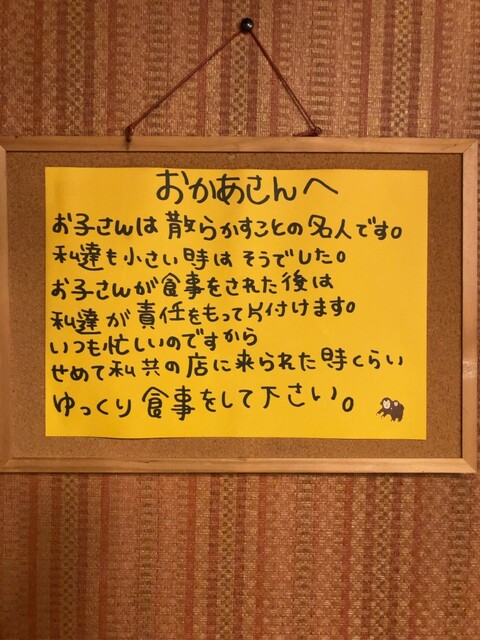 おかあさんへ
お子さんは散らかすことの名人です。
私達も小さい時はそうでした。
お子さんが食事をされた後は
私達が責任をもって片付けます。
いつも忙しいのですから
せめて私共の店に来られた時くらい
ゆっくり食事をして下さい。